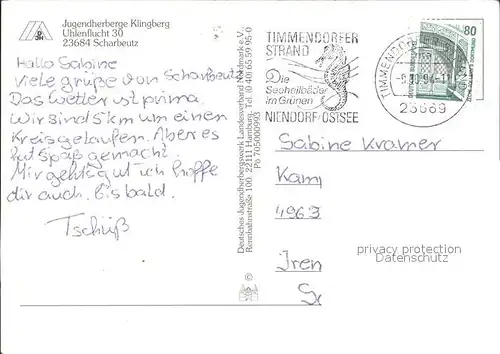 Jugendherberge Klingberg
Uhlenflucht 30
23684 Scharbeutz
Hallo Sabine
viele grüße von Scharbeutz
Das Wetter ist prima.
Wir sind 5 km um einen
Kreis gelaufen. Aber es
hat Spaß gemacht.
Mir geht's gut ich hoffe
dir auch. bis bald.
Tschüß
Deutsches Jugendherbergswerk Landesverband Nordmark e.V.
Rennbahnstraße 100, 22111 Hamburg, Tel. (0 40) 65 59 95-0
Po 705000993
©
TIMMENDORFER
STRAND
Die
Seeheilbäder
im Grünen
NIENDORF/OSTSEE
TIMMENDORFER
23669
80
Sabine Kramer
Kam
4963
Iren
privacy protection
Datenschutz